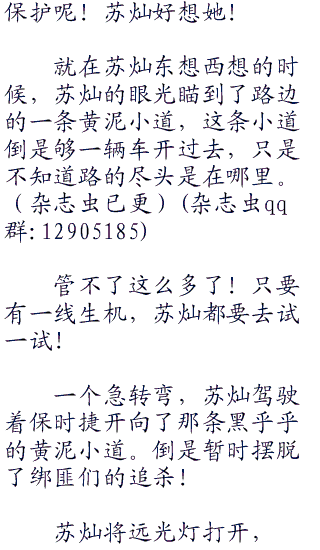 保护呢！苏灿好想她！
就在苏灿东想西想的时
候，苏灿的眼光瞄到了路边
的一条黄泥小道，这条小道
倒是够一辆车开过去，只是
不知道路的尽头是在哪里。
（杂志虫已更）(杂志虫qq
群: 12905185)
管不了这么多了！只要
有一线生机，苏灿都要去试
一试！
一个急转弯，苏灿驾驶
着保时捷开向了那条黑乎乎
的黄泥小道。倒是暂时摆脱
了绑匪们的追杀！
苏灿将远光灯打开，